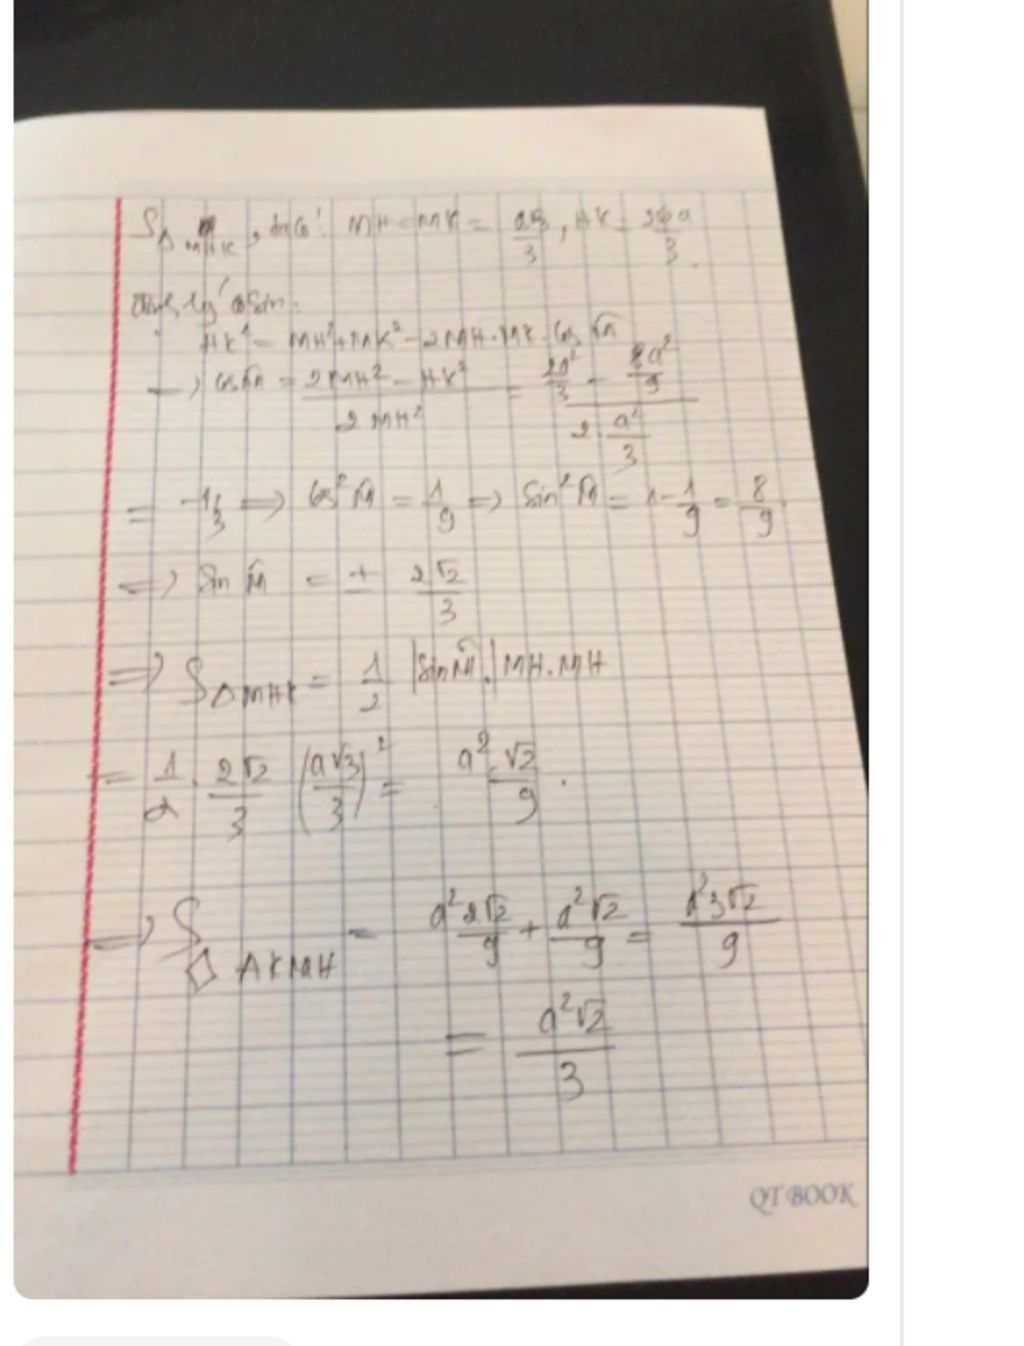 S△MHK, ta có: MH = MK = a√3/3, HK = 2√2a/3.
định lý cosin.
HK² = MH² + MK² - 2MH.MK.cos M̂
→ cos M̂ = (2MH² - HK²)/(2MH²) = (2a²/3 - 8a²/9)/(2 a²/3)
= -1/3 ⇒ cos² M̂ = 1/9 ⇒ sin² M̂ = 1 - 1/9 = 8/9
⇒ sin M̂ = ± 2√2/3
⇒ S△MHK = 1/2 |sin M̂|.MH.MH
= 1/2 . 2√2/3 (a√3/3)² = a²√2/9.
⇒ S◇AKMH = a²2√2/9 + a²√2/9 = a²3√2/9
= a²√2/3
QT BOOK